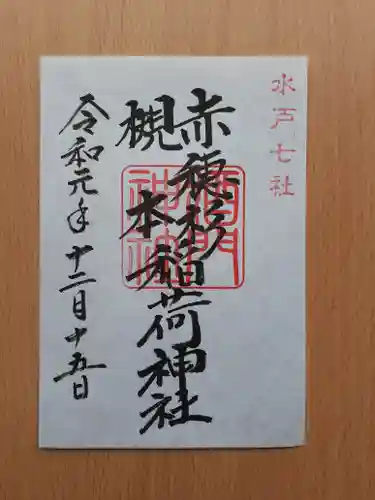 水戸七社
赤穂杉稲荷神社
槻本
令和元年十二月十五日